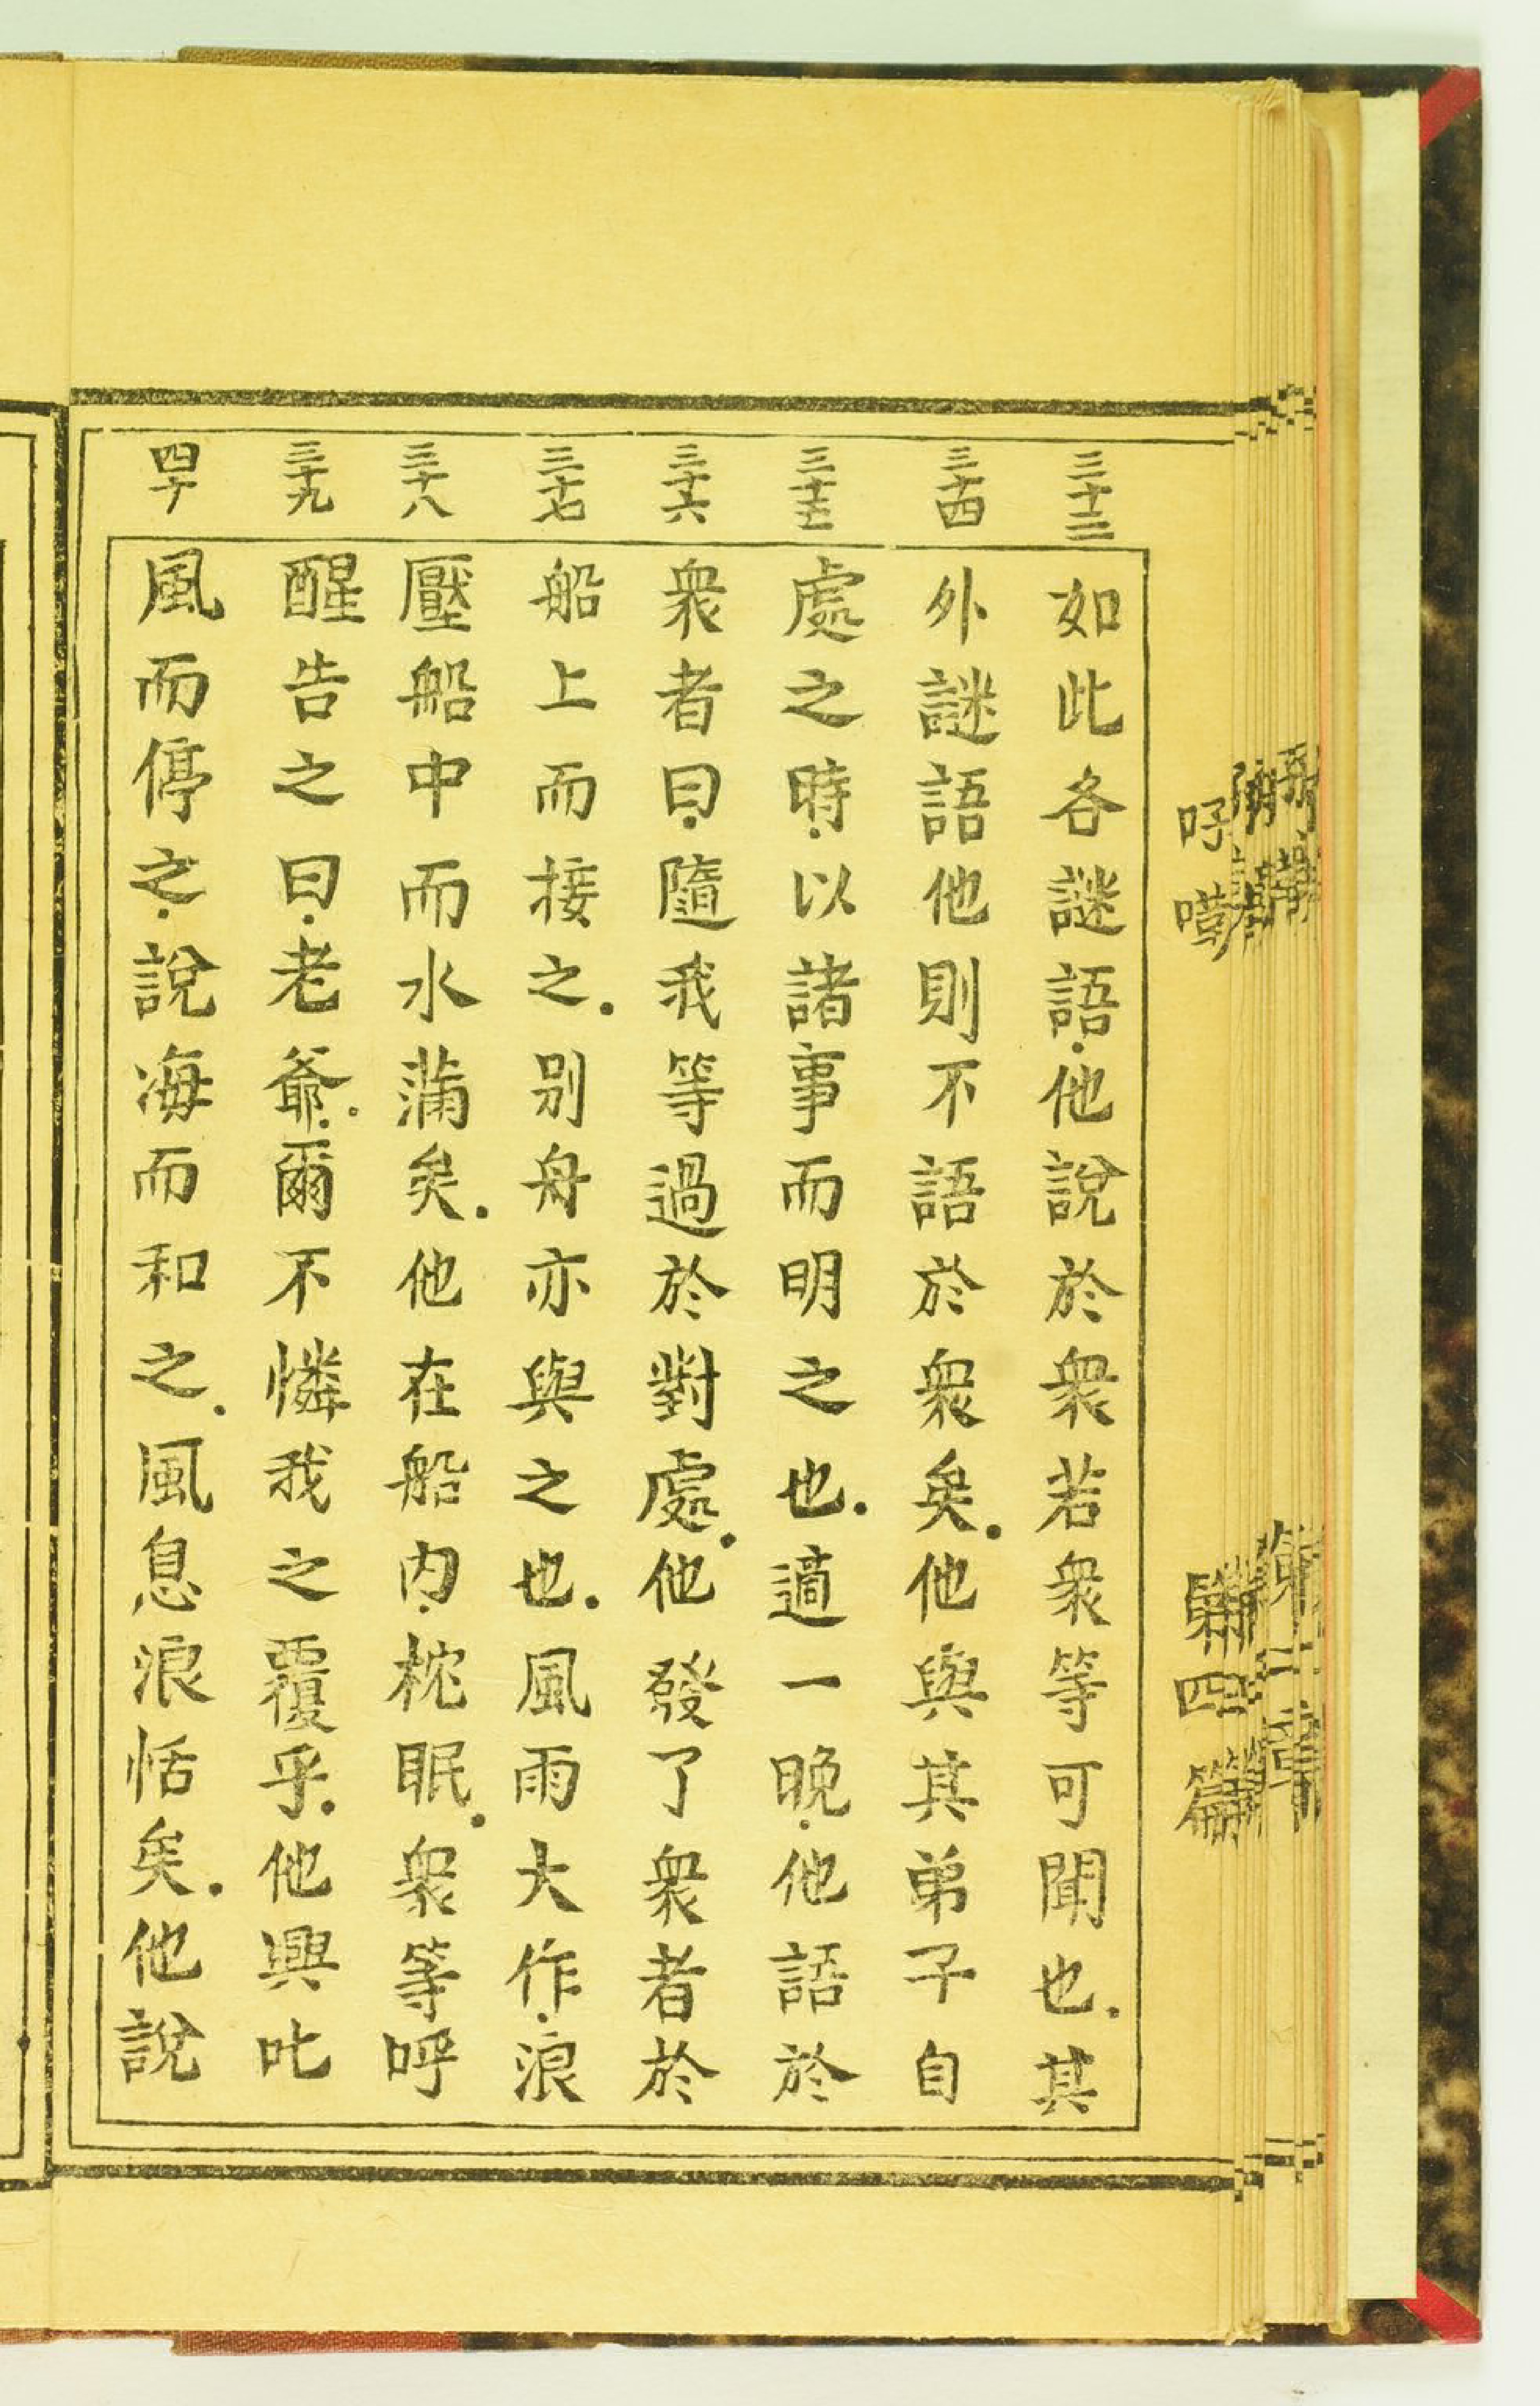 三十三
如此各謎語他說於衆若衆等可聞也其
三十四
外謎語他則不語於衆矣他與其弟子自
三十五
處之時以諸事而明之也適一晚他語於
三十六
衆者曰隨我等過於對處他發了衆者於
三十七
船上而接之別舟亦與之也風雨大作浪
三十八
壓船中而水蒲矣他在船內枕眠衆等呼
三十九
醒告之曰老爺爾不憐我之覆乎他興叱
四十
風而停之說海而和之風息浪恬矣他說
第四篇